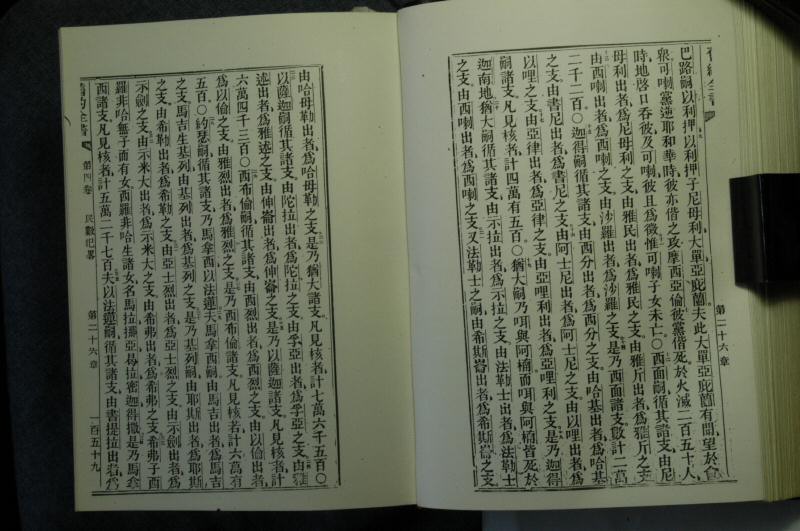 舊約全書
第二十六章
巴路嗣以利押以利押子尼母利大單亞庇蘭夫此大單亞庇蘭有聞望於會
衆可喇黨逆耶和華時彼亦偕之攻摩西亞倫彼黨偕死於火滅二百五十人
時地啓口吞彼及可喇彼且爲徵惟可喇子女未亡〇西面嗣循其諸支由尼
母利出者爲尼母利之支由雅民出者爲雅民之支由雅斤出者爲雅斤之支
由西喇出者爲西喇之支由沙羅出者爲沙羅之支是乃西面諸支數計二萬
二千二百〇迦得嗣循其諸支由西分出者爲西分之支由哈基出者爲哈基
之支由書尼出者爲書尼之支由阿士尼出者爲阿士尼之支由以哩出者爲
以哩之支由亞律出者爲亞律之支由亞哩利出者爲亞哩利之支是乃迦得
嗣諸支凡見核者計四萬有五百〇猶大嗣乃咡與阿楠而咡與阿楠皆死於
迦南地猶大嗣循其諸支由示拉出者爲示拉之支由法勒士出者爲法勒士
之支由西喇出者爲西喇之支又法勒士之嗣由希斯崙出者爲希斯崙之支
由哈母勒出者爲哈母勒之支是乃猶大諸支凡見核者計七萬六千五百〇
以薩迦嗣循其諸支由陀拉出者爲陀拉之支由孚亞出者爲孚亞之支由雅
述出者爲雅述之支由伸崙出者爲伸崙之支是乃以薩迦諸支凡見核者計
六萬四千三百〇西布倫嗣循其諸支由西烈出者爲西烈之支由以倫出者
爲以倫之支由雅烈出者爲雅烈之支是乃西布倫諸支凡見核者計六萬有
五百〇約瑟嗣循其諸支乃馬拿西以法蓮夫馬拿西嗣由馬吉出者爲馬吉
之支馬吉生基列由基列出者爲基列之支是乃基列嗣由耶斯出者爲耶斯
之支由希勒出者爲希勒之支由亞士烈出者爲亞士烈之支由示劍出者爲
示劍之支由示米大出者爲示米大之支由希弗出者爲希弗之支希弗子西
羅非哈無子而有女西羅非哈生諸女名馬拉挪亞曷拉密迦得撒是乃馬拿
西諸支凡見核者計五萬二千七百夫以法蓮嗣循其諸支由書提拉出者爲
舊約全書
第四卷 民數紀畧
第二十六章
一百五十九